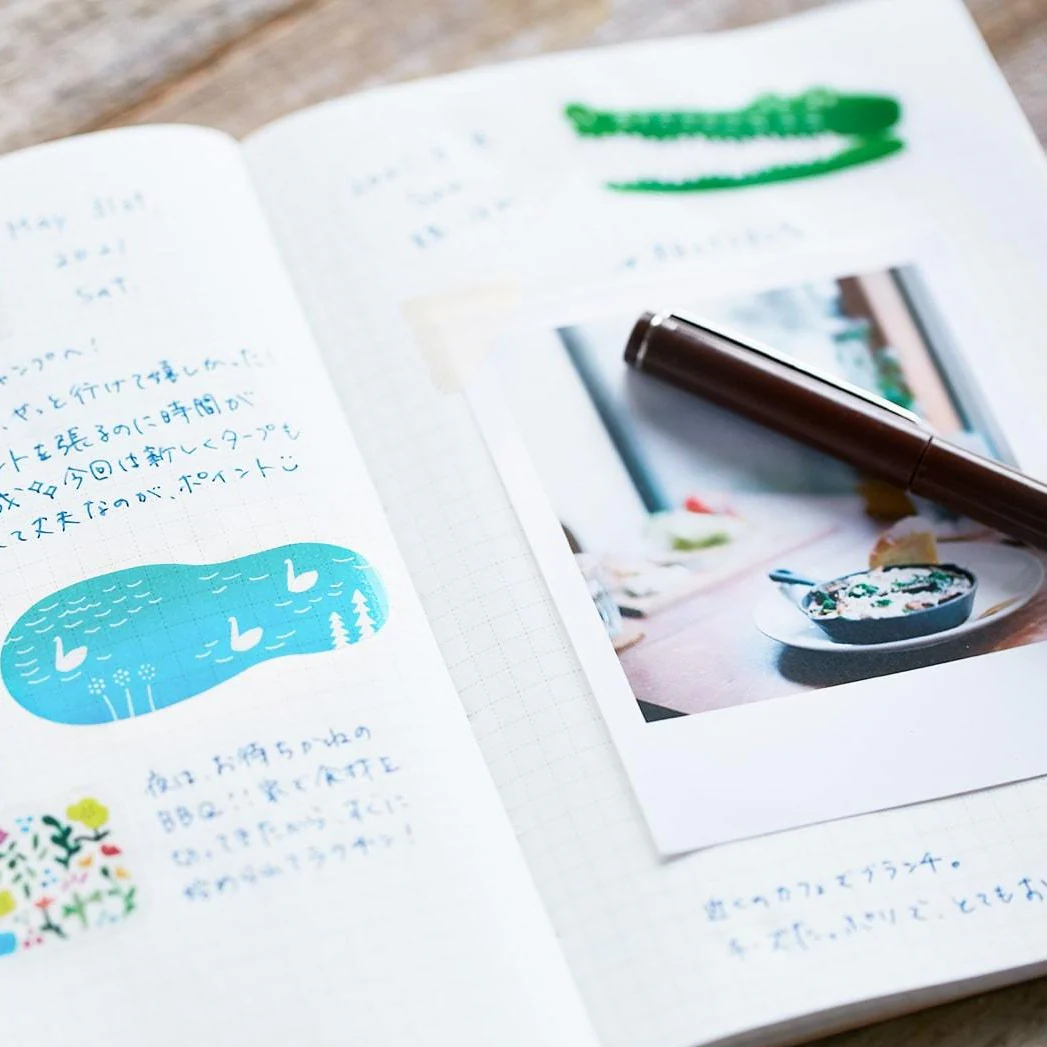 May 31st
2021
Sat.
ャンプへ!
やっと行けて嬉しかった!
ントを張るのに時間が
今回は新しくタープも
て丈夫なのが、ポイント
夜は、お待ちかねの
BBQ!! 家で食材を
切ってきたから、すぐに
始められてラクチン!
近くのカフェでブランチ。
チーズたっぷりで、とてもお